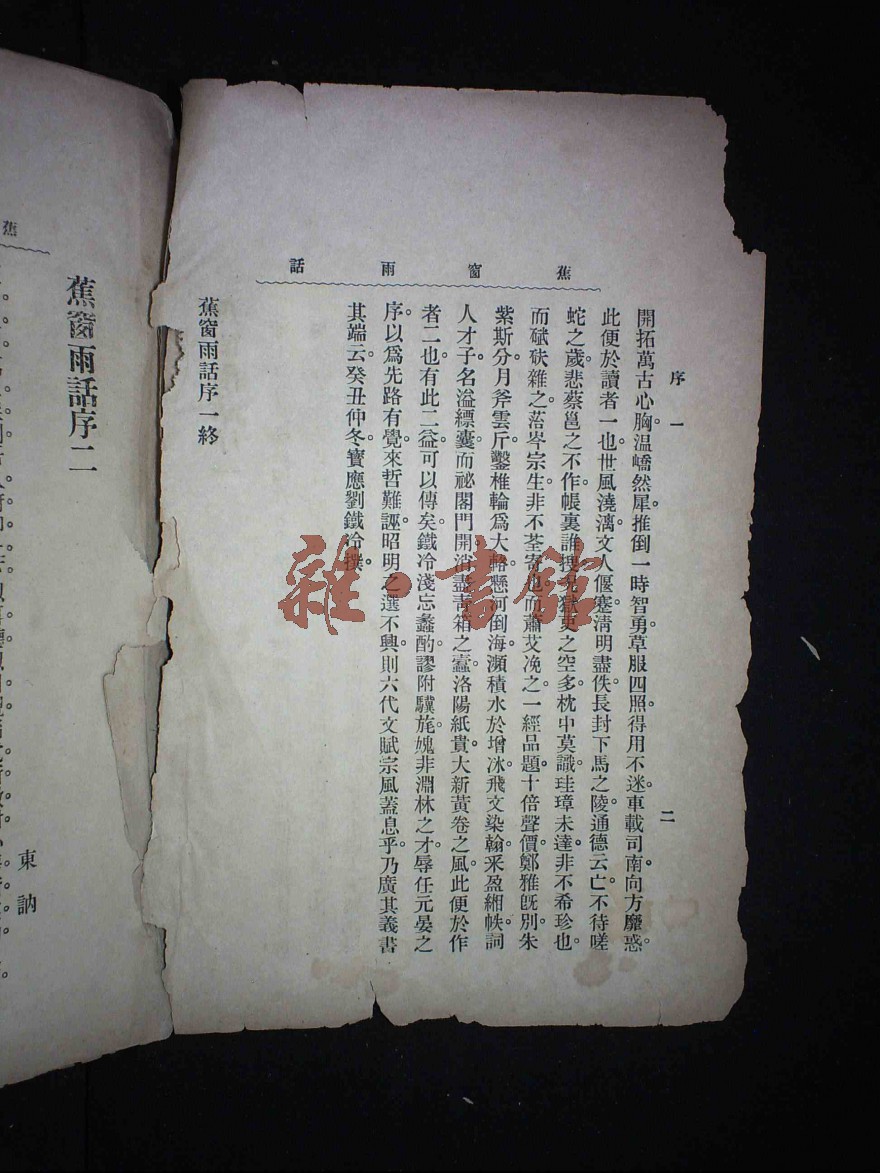 蕉窗雨話
序一
二
開拓萬古心胸。温嶠然犀。推倒一時智勇。草服四照。得用不迷。車載司南。向方靡惑。
此便於讀者一也。世風澆漓。文人偃蹇。淸明盡佚。長封下馬之陵。通德云亡。不待嗟
蛇之歲。悲蔡邕之不作。帳裏誰搜。獄吏之空多。枕中莫識。珪璋未達。非不希珍也。
而碔砆雜之。菭岑宗生。非不荃寄也。而蕭艾凂之。一經品題。十倍聲價。鄭雅旣別。朱
紫斯分。月斧雲斤。鑿椎輪爲大輅。懸河倒海。瀕積水於增冰。飛文染翰。釆盈緗帙。詞
人才子。名溢縹囊。而祕閣門開。消盡靑箱之蠹。洛陽紙貴。大新黃卷之風。此便於作
者二也。有此二益。可以傳矣。鐵冷淺忘蠡酌。謬附驥旄。媿非淵林之才。辱任元晏之
序。以爲先路。有覺來哲難誣。昭明之選不興。則六代文賦宗風蓋息乎。乃廣其義。書
其端云。癸丑仲冬寶應劉鐵冷撰。
蕉窗雨話序一終
雜·書館
蕉
蕉窗雨話序二
東訥